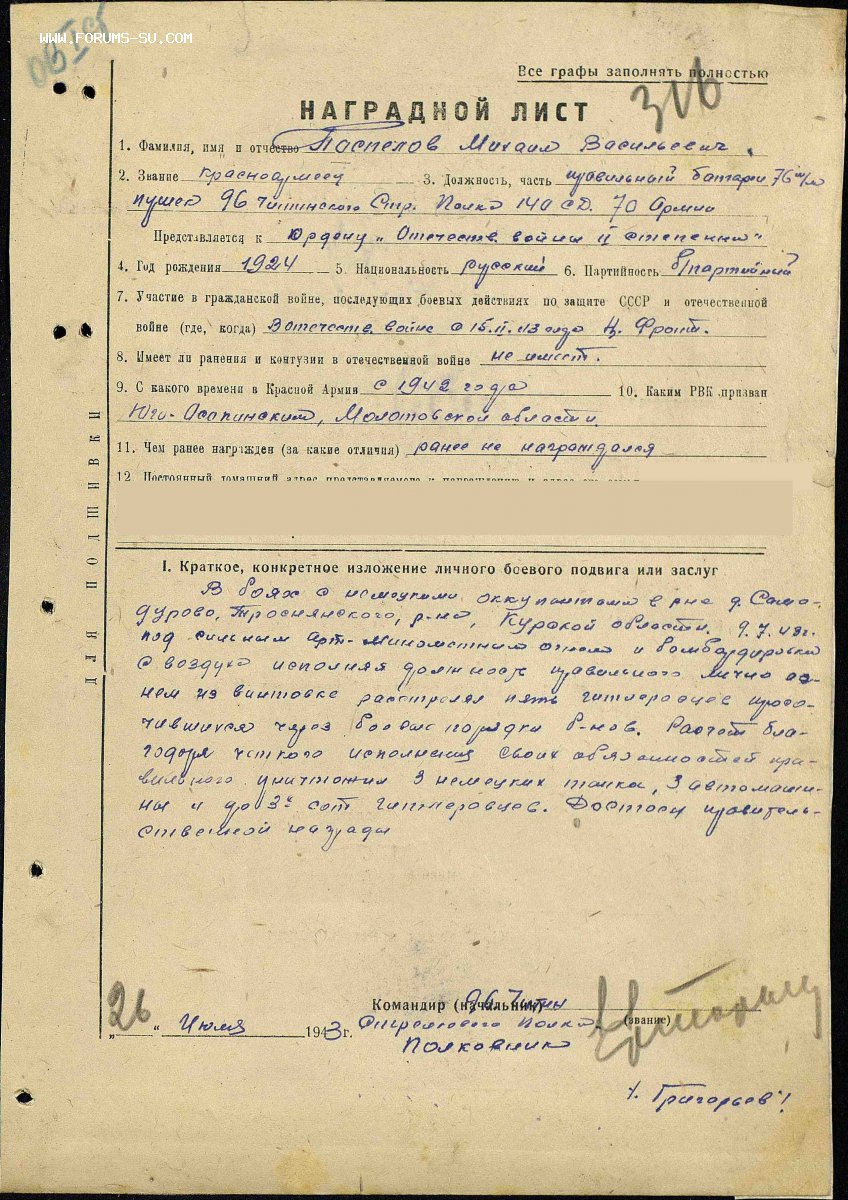 WWW.FORUMS-SU.COM
Все графы заполнять полностью
316
НАГРАДНОЙ ЛИСТ
1. Фамилия, имя и отчество Паспелов Михаил Васильевич.
2. Звание красноармеец 3. Должность, часть правильный батареи 76 м/м
пушек 96 Читинского Стр. Полка 140 СД. 70 Армии
Представляется к Ордену „Отечеств. войны II степени"
4. Год рождения 1924 5. Национальность русский 6. Партийность б/партийный
7. Участие в гражданской войне, последующих боевых действиях по защите СССР и отечественной
войне (где, когда) В отечеств. войне с 15.II.43 года Ц. Фронт.
8. Имеет ли ранения и контузии в отечественной войне не имеет.
9. С какого времени в Красной Армии с 1942 года 10. Каким РВК призван
Юго-Осапинским, Молотовской области
11. Чем ранее награжден (за какие отличия) ранее не награждался
12. Постоянный домашний адрес представляемого к награждению и адрес его семьи
ДЛЯ ПОДШИВКИ
I. Краткое, конкретное изложение личного боевого подвига или заслуг
В боях с немецкими оккупантами в р-не д. Само-
дурово, Троснянского, р-на, Курской области. 9.7.43г.
под сильным арт-минометным огнем и бомбардировкой
с воздуха исполняя должность правильного лично ог-
нем из винтовки расстрелял пять гитлеровцев просо-
чившихся через боевые порядки б-нов. Расчет бла-
годоря четкого исполнения своих обязанностей пра-
вильного уничтожил 3 немецких танка, 3 автомаши-
ны и до 3х сот гитлеровцев. Достоен правитель-
ственной награды
Командир (начальник) 96 Читин
(звание)
„26" Июля 1943 г. Стрелкового Полка
Полковник
/. Григорьев /